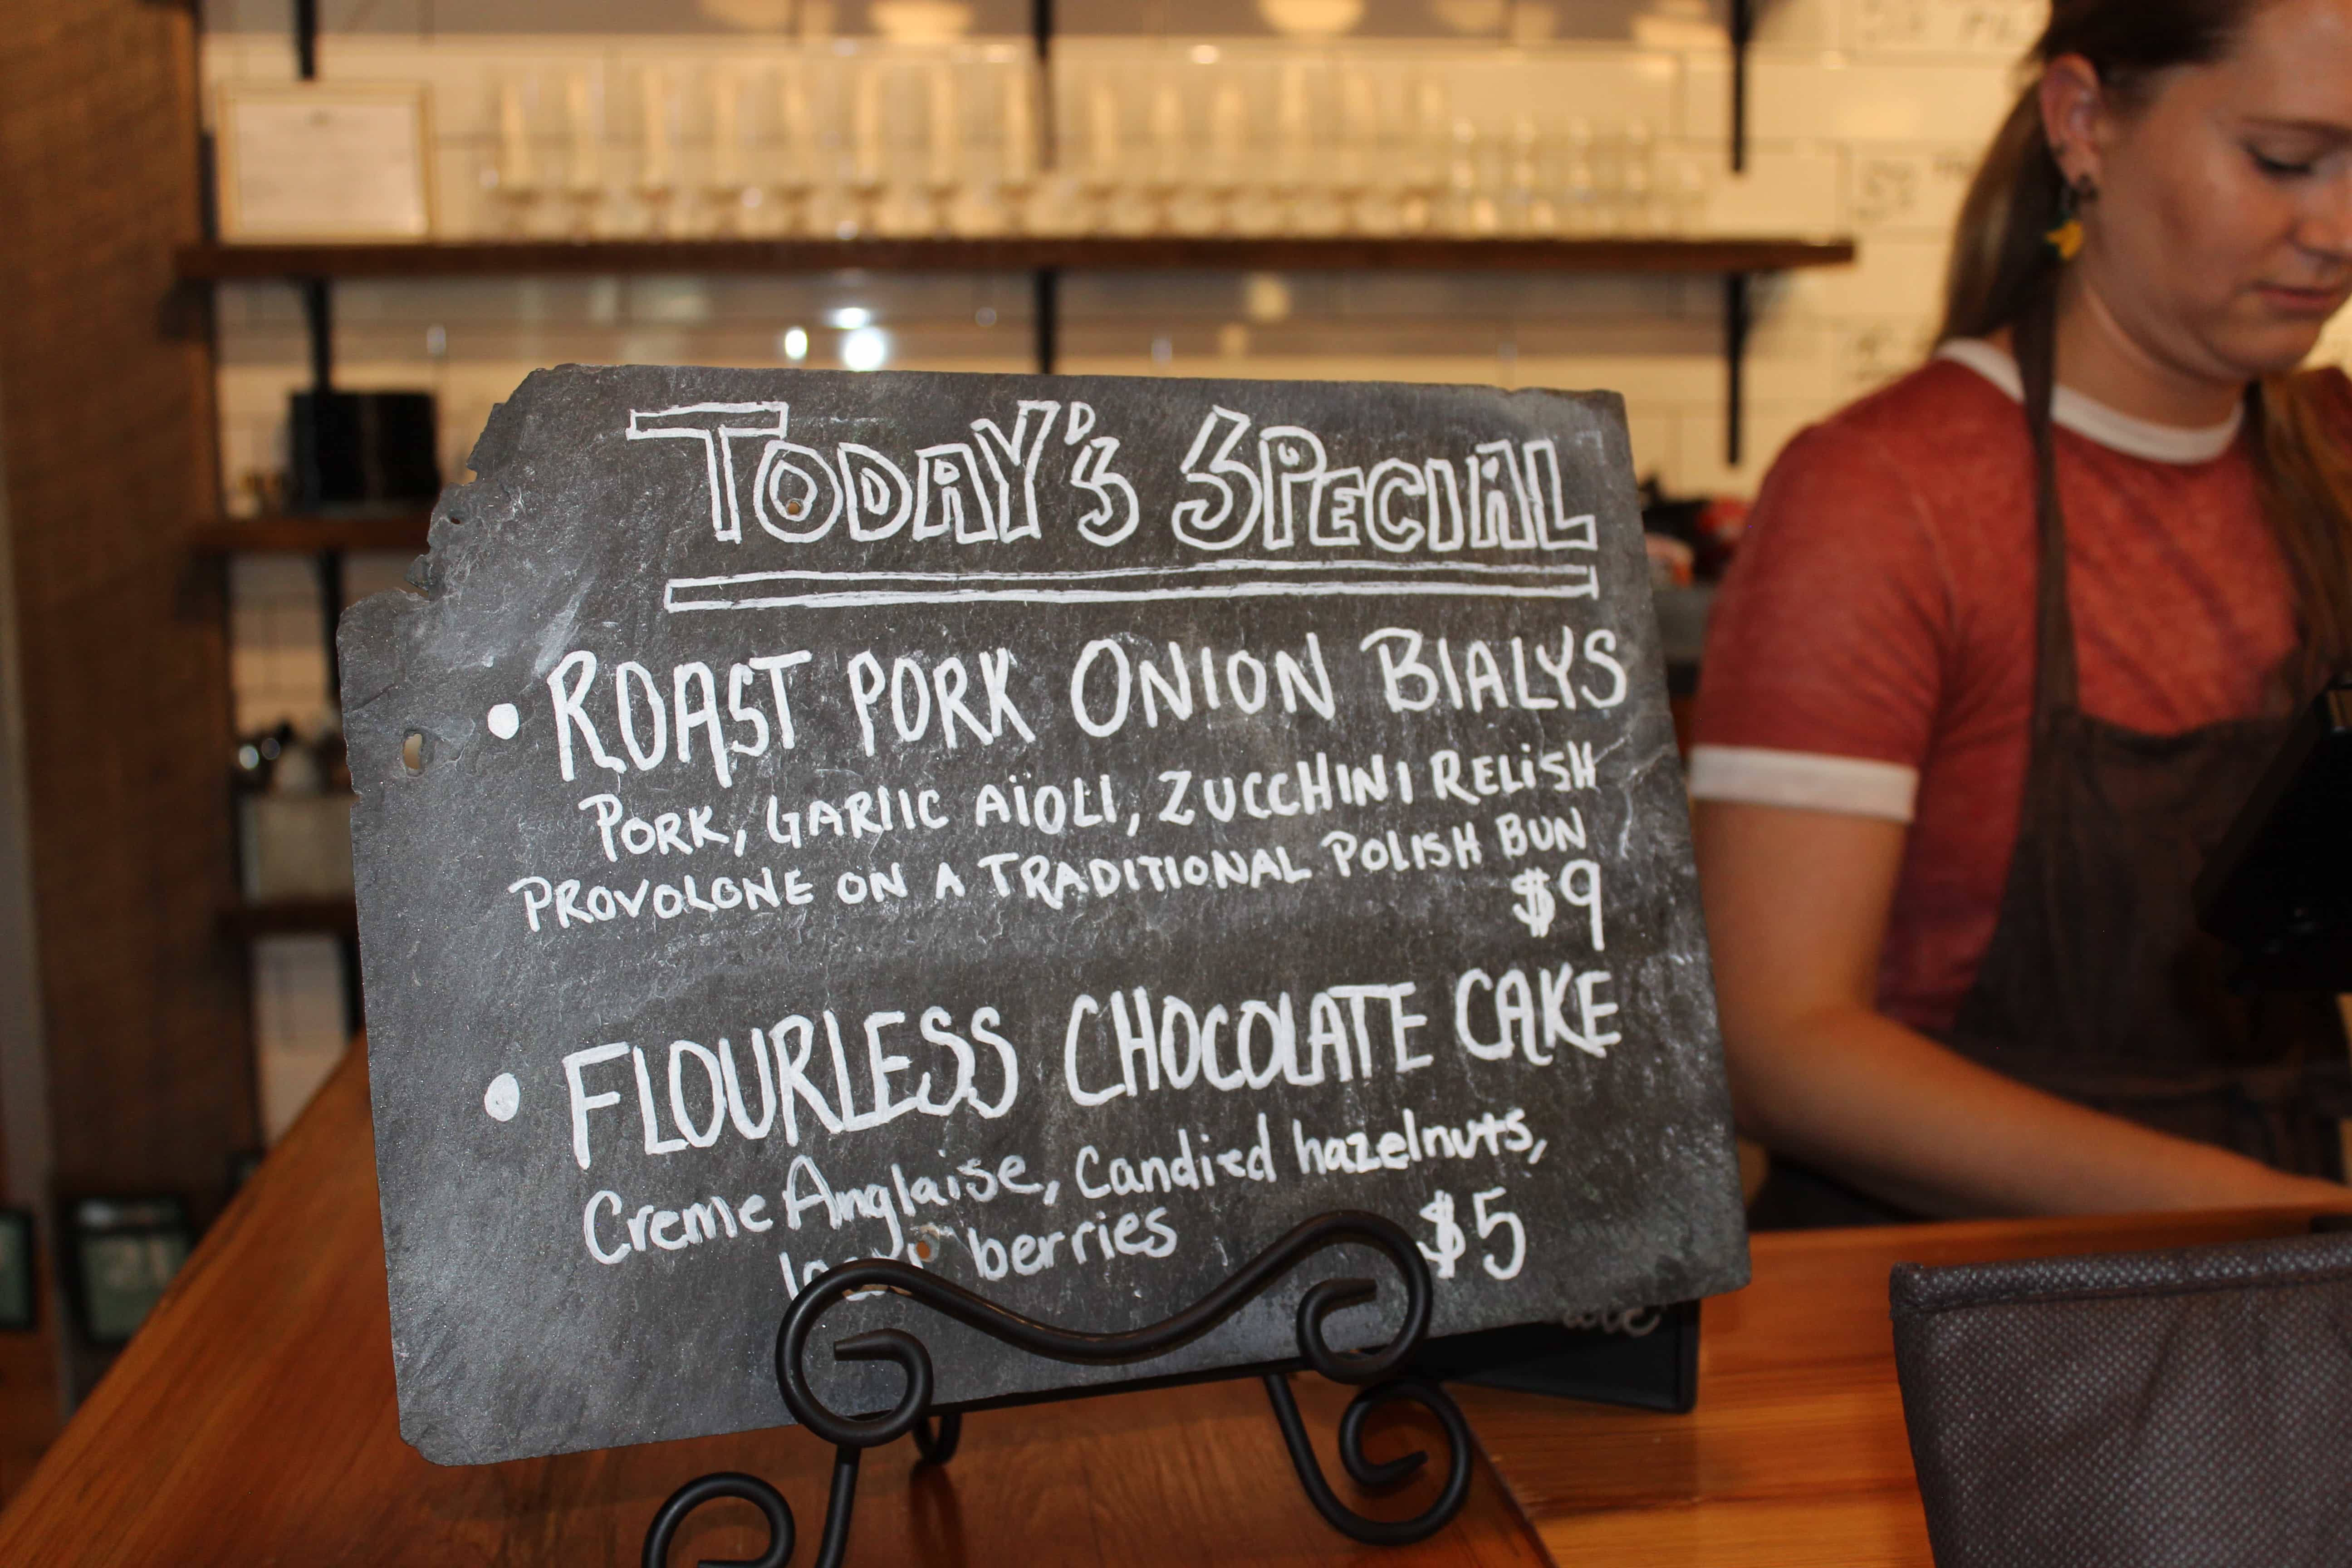 TODAY'S SPECIAL
• ROAST PORK ONION BIALYS
PORK, GARLIC AÏOLI, ZUCCHINI RELISH
PROVOLONE ON A TRADITIONAL POLISH BUN
$9
• FLOURLESS CHOCOLATE CAKE
Creme Anglaise, Candied hazelnuts,
berries $5